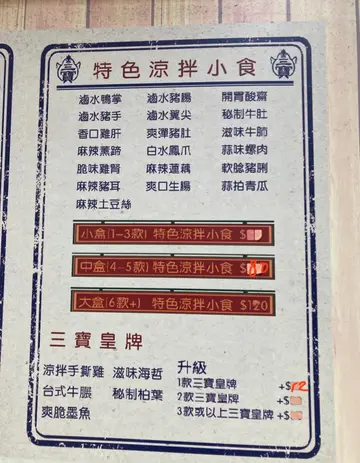 特色涼拌小食
滷水鴨掌 滷水豬腸 開胃酸齋
滷水豬手 滷水翼尖 秘制牛肚
香口雞肝 爽彈豬肚 滋味牛肺
麻辣蕨蹄 白水鳳爪 蒜味螺肉
脆味雞腎 麻辣蓮藕 軟腍豬脷
麻辣豬耳 爽口生腸 蒜拍青瓜
麻辣土豆絲
小盒(1-3款) 特色涼拌小食 $
中盒(4-5款) 特色涼拌小食 $
大盒(6款+) 特色涼拌小食 $120
三寶皇牌
涼拌手撕雞 滋味海哲
台式牛𦟌 秘制柏葉
爽脆墨魚
升級
1款三寶皇牌 +$12
2款三寶皇牌 +$
3款或以上三寶皇牌 +$